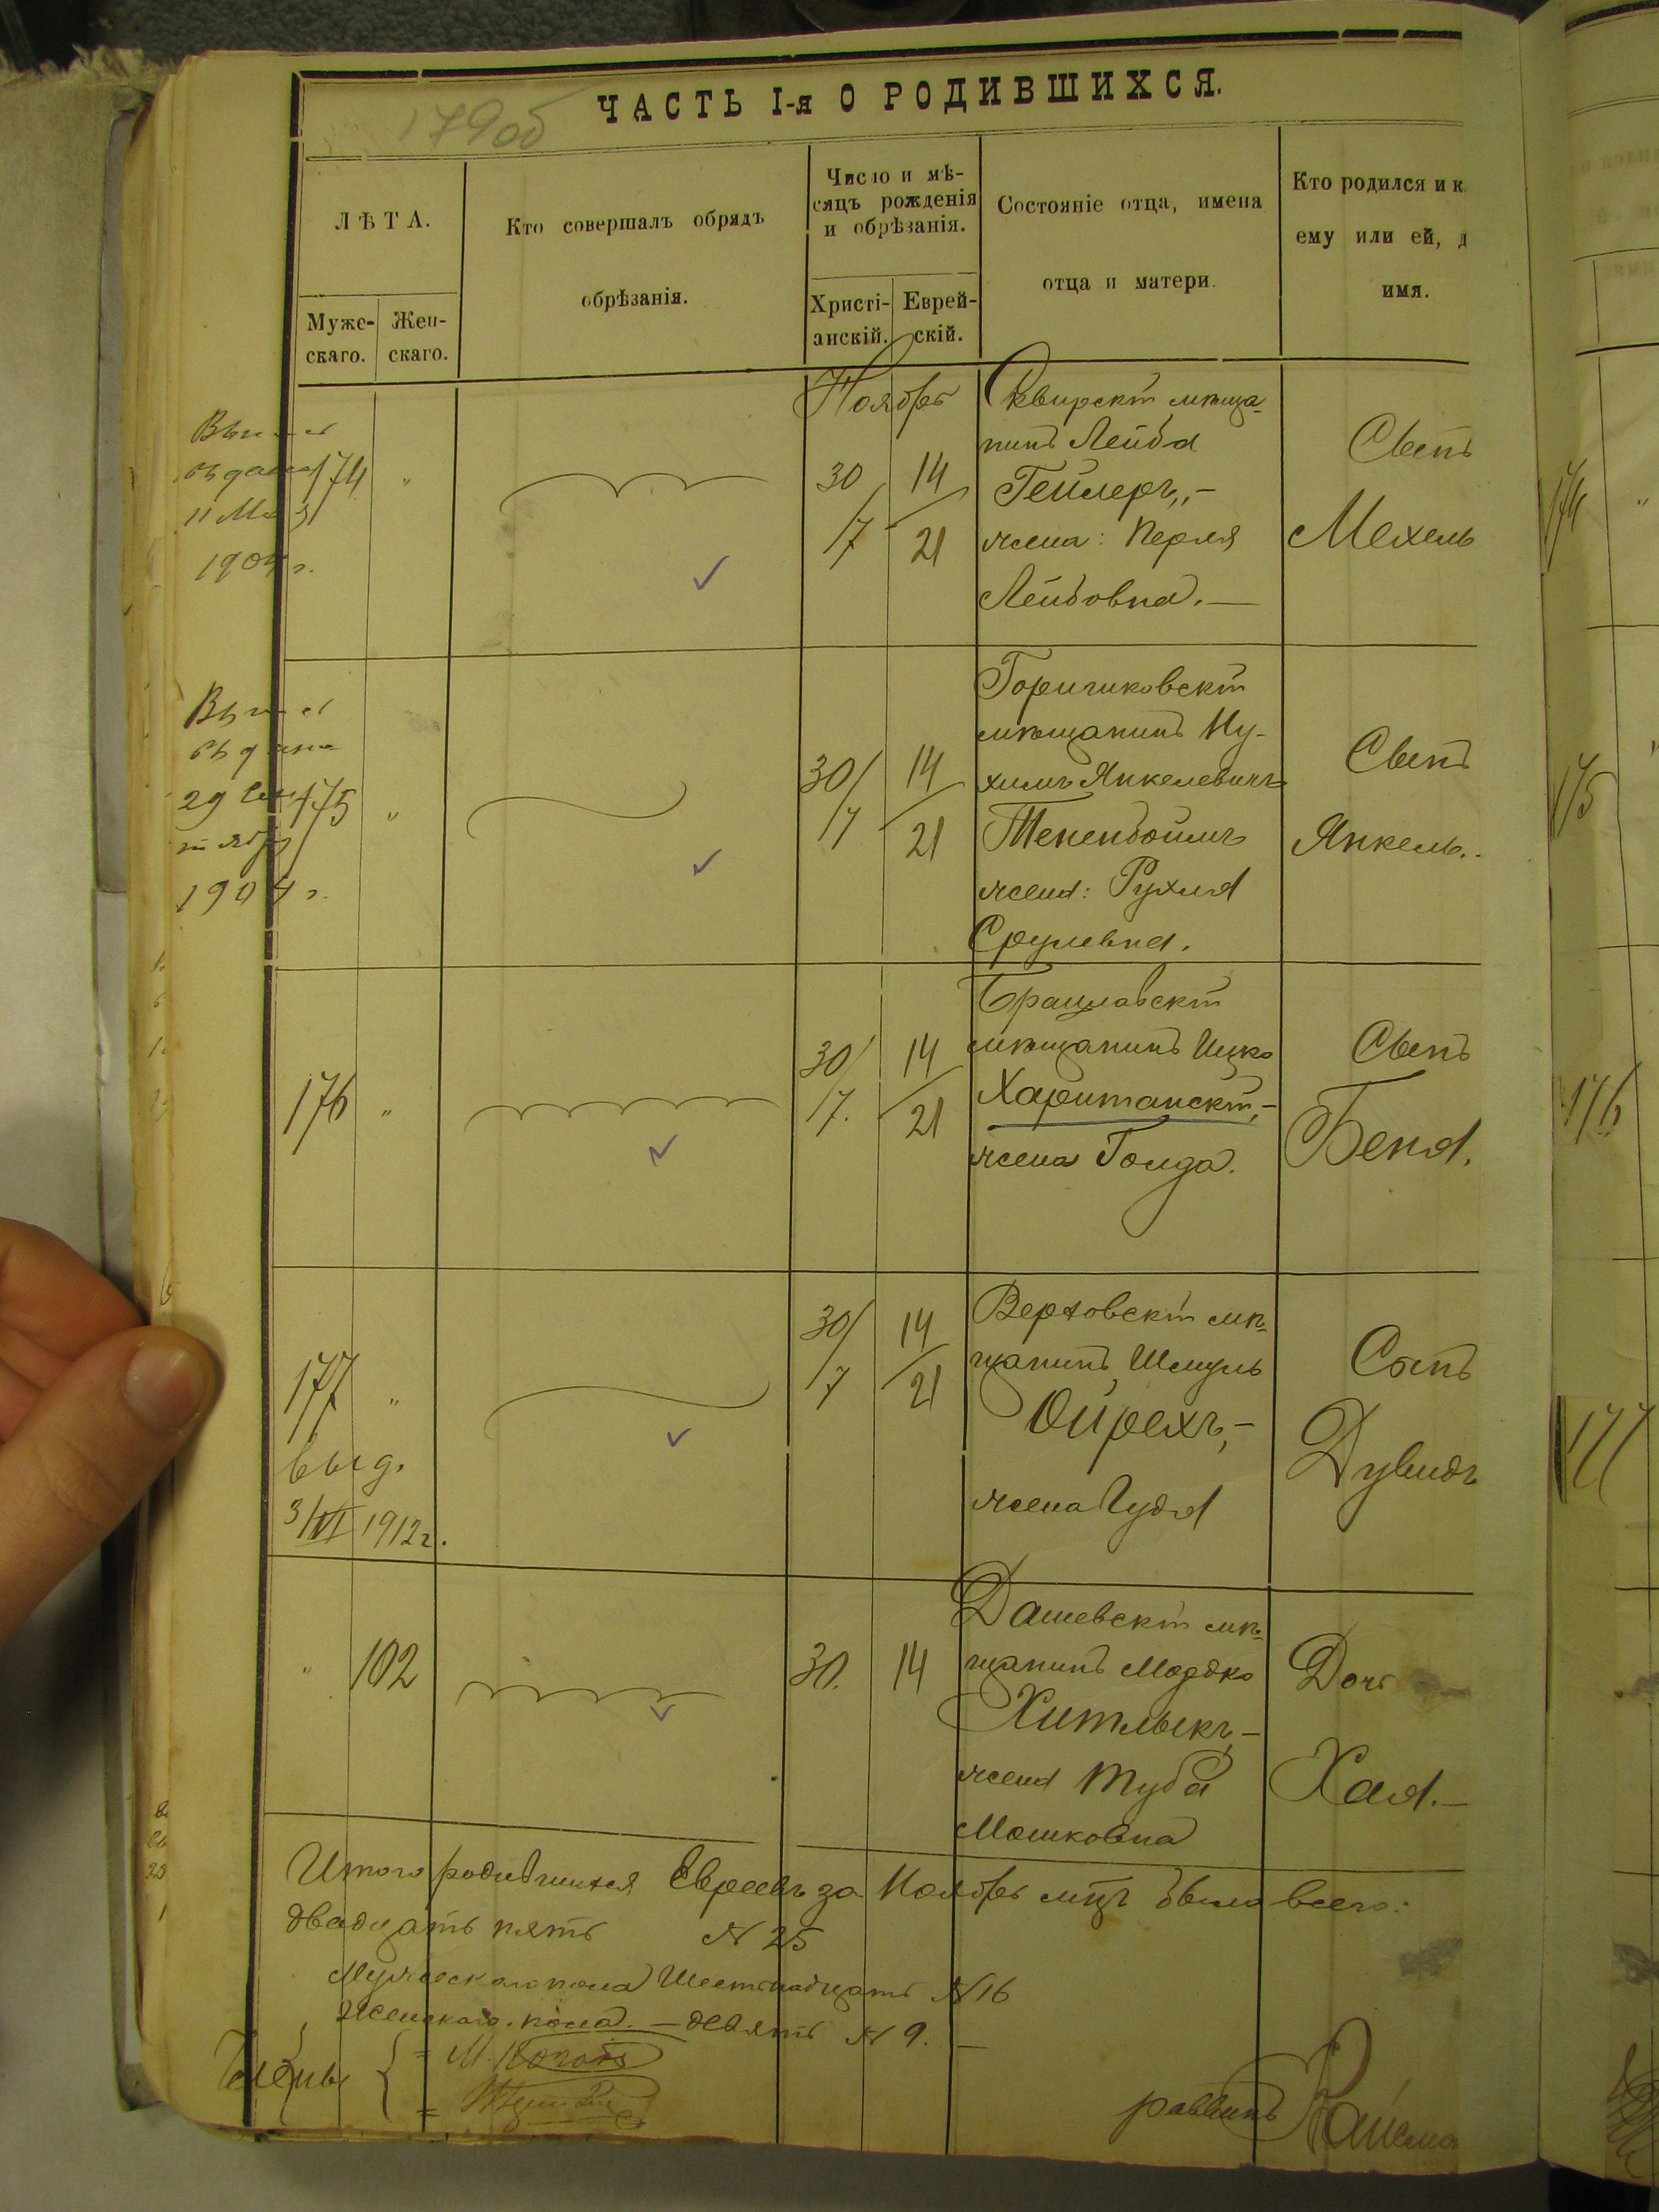 179об
ЧАСТЬ I-я О РОДИВШИХСЯ.
ЛѢТА.
Мужс-
скаго.
Жен-
скаго.
Кто совершалъ обрядъ
обрѣзанія.
Число и мѣ-
сяцъ рожденія
и обрѣзанія.
Христі-
анскій.
Еврей-
скій.
Состояніе отца, имена
отца и матери.
Кто родился и к
ему или ей, д
имя.
Ноябрь
11
1904 г.
174 "
30 14
/7 21
Сквирскій мѣща-
нинъ Лейба
Гейлеръ,-
жена: Перля
Лейбовна.—
Сынъ
Мехель
29
1904 г.
175 "
30/ 14
/7 21
мѣщанинъ Ну-
химъ Янкелевичъ
Тененбоймъ
жена: Рухля
Срулевна.
Сынъ
Янкель.
176 "
30/ 14
/7. 21
Брацлавскій
мѣщанинъ Ицко
Хаританскій,-
жена Голда.
Сынъ
Беня.
177 "
выд.
3/VI 1912г.
30/ 14
/7 21
Верховскій мѣ-
щанинъ Шмуль
Ойрехъ,-
жена Гудя
Сынъ
Дувидъ
" 102
30. 14
Дашевскій мѣ-
щанинъ Мордко
Хитлыкъ,-
жена Туба
Мошковна
Дочь
Хая.—
Итого родившихся Евреевъ за Ноябрь мцъ было всего:
двадцать пять N 25
Мужескаго пола Шестнадцать N 16
Женскаго пола.— девять N 9.—
Члены
раввинъ
174 "
175
176
177